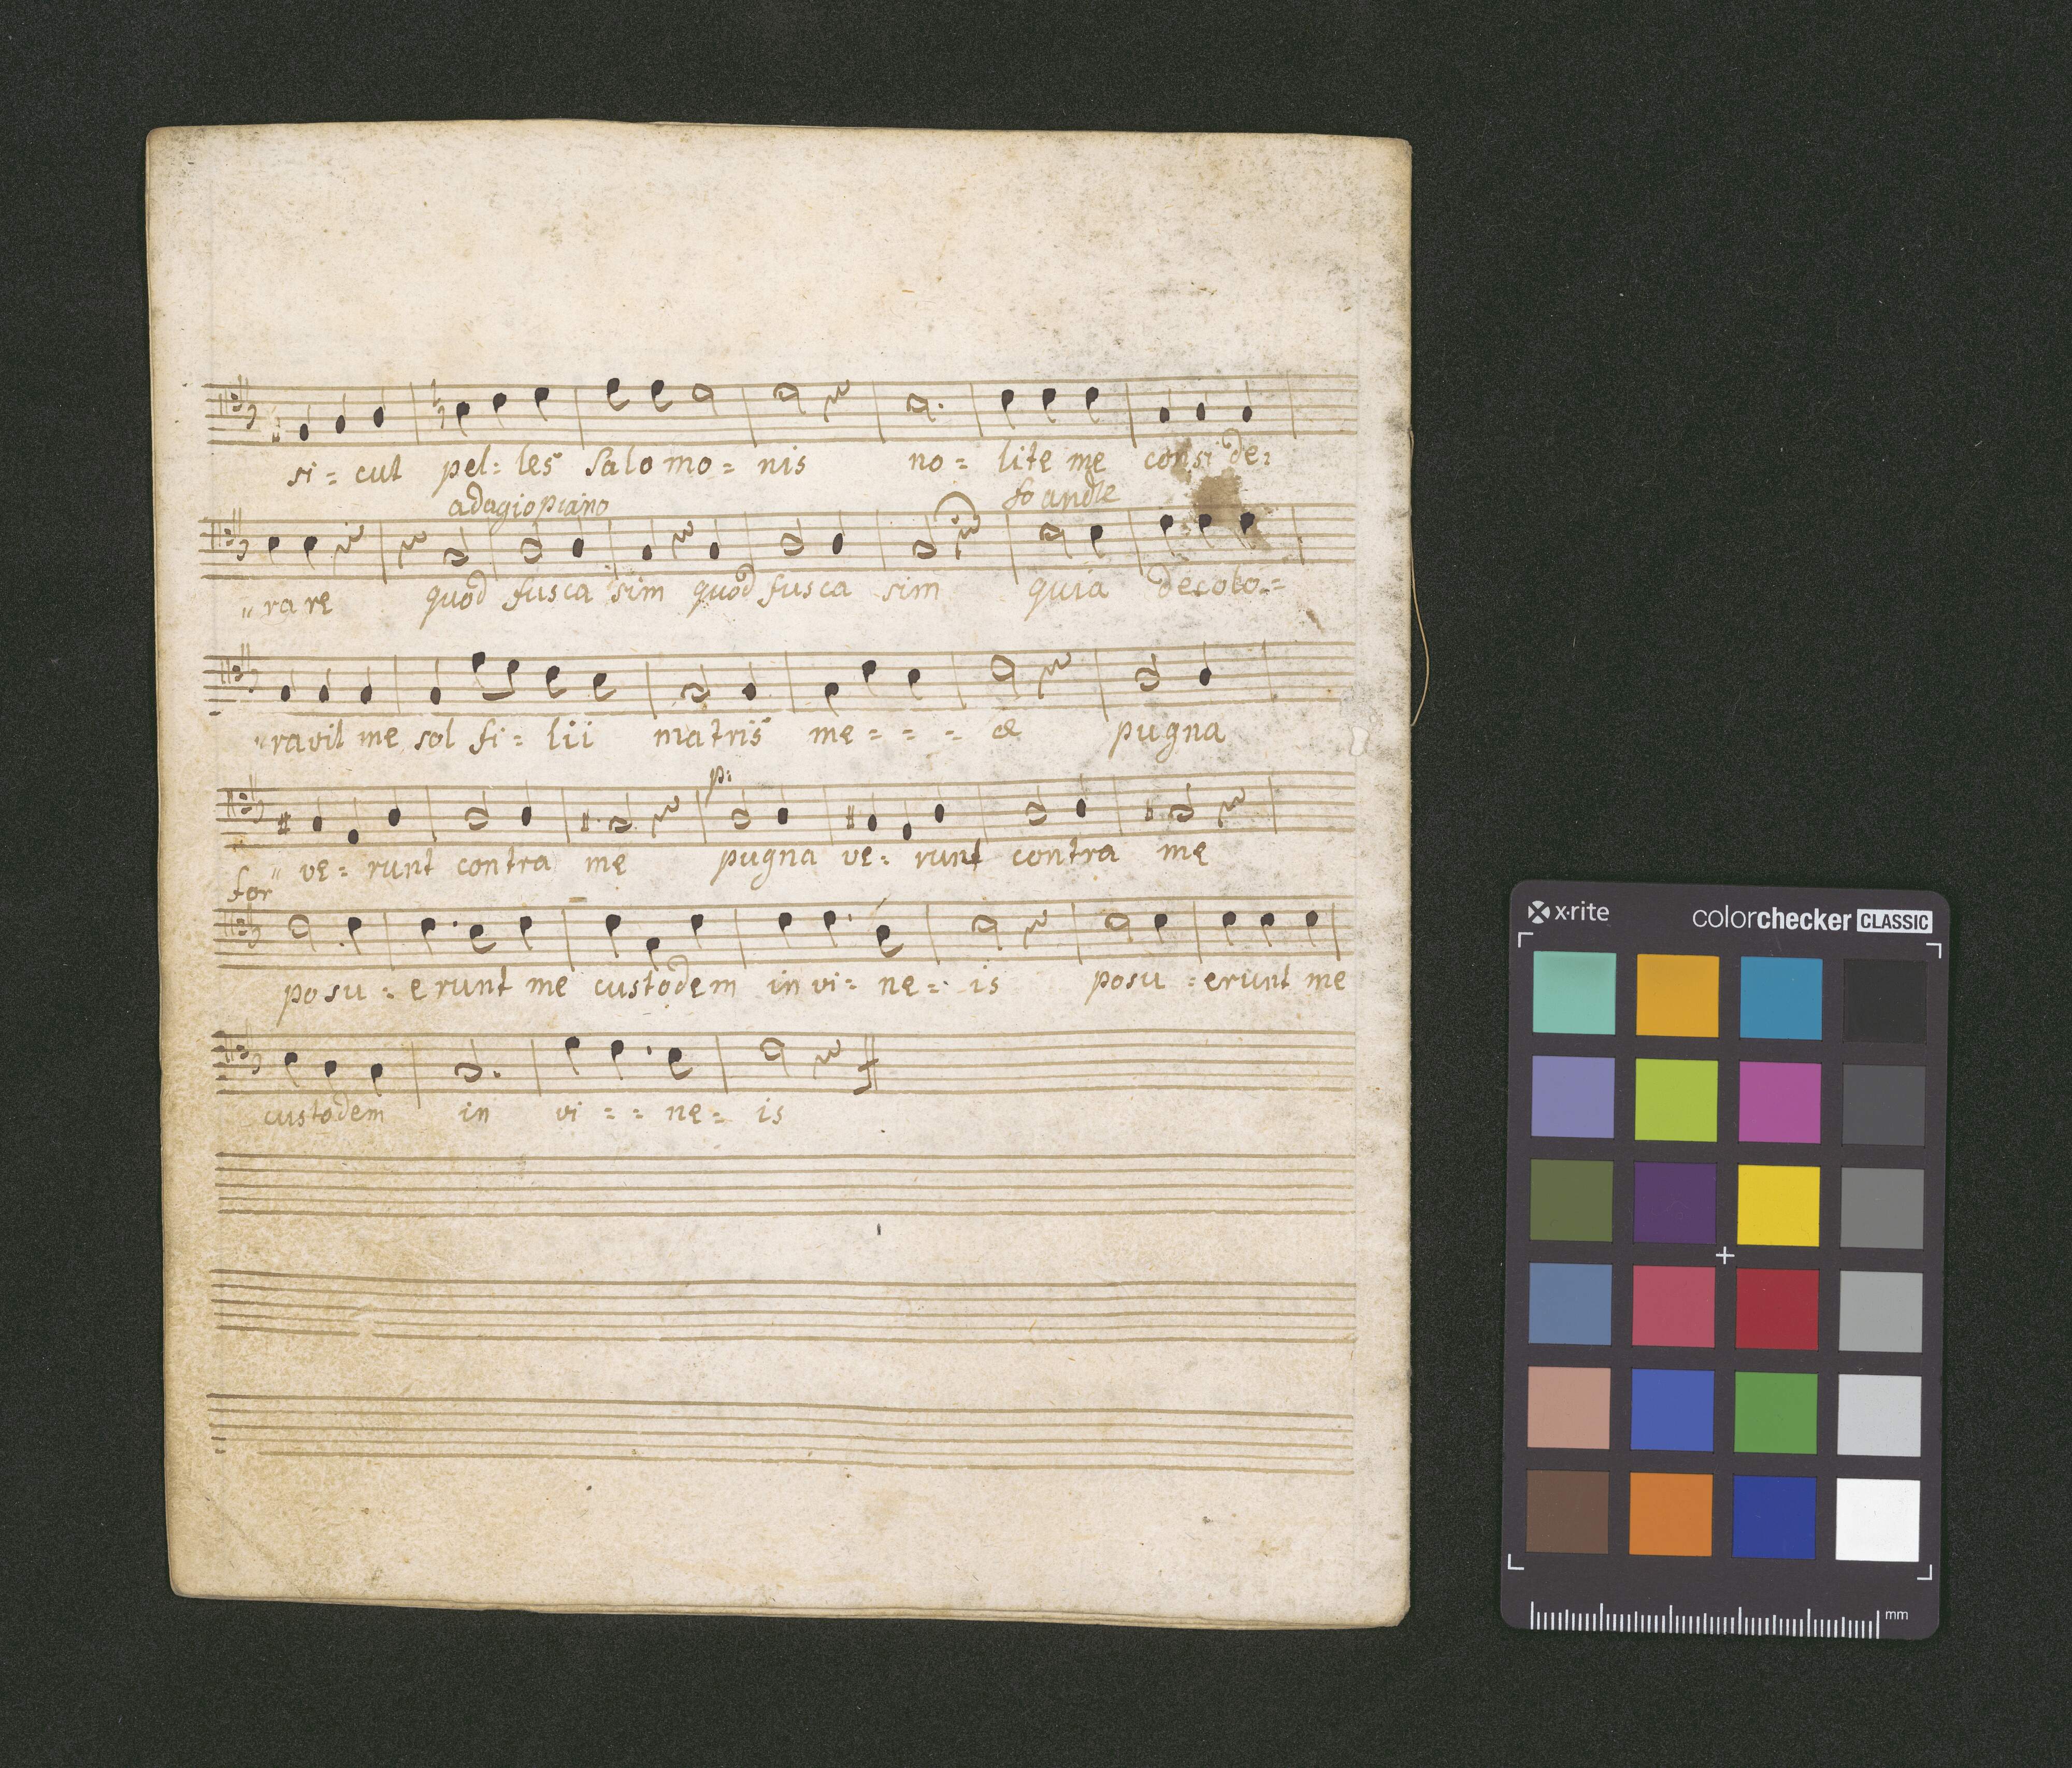 si = cut pel: les Salomo = nis no = lite me consi de:
adagio piano fo andte
"rare quod fusca sim quod fusca sim quia decolo.=
"ravit me sol fi = lii matris me = = = æ pugna
p:
" ve = runt contra me pugna ve: runt contra me
for
posu = erunt me custodem in vi = ne = is posu = erunt me
custodem in vi = = ne = is
x·rite colorchecker CLASSIC
mm